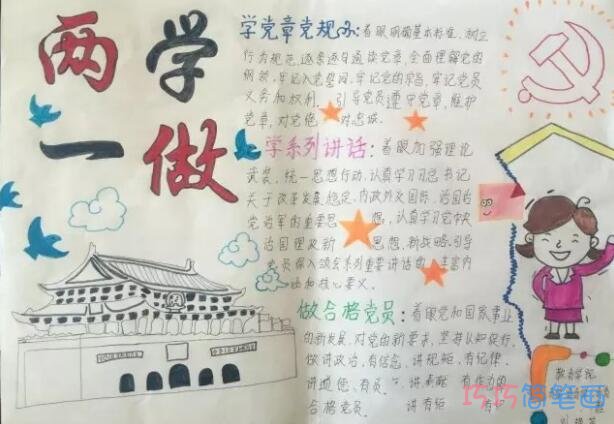 两学
一做
学党章党规办：着眼明确基本标准、树立
行为规范，逐条逐句通读党章，全面理解党的
纲领，牢记入党誓词，牢记党的宗旨，牢记党员
义务和权利，引导党员遵守党章，维护
党章，对党绝对忠诚
学系列讲话：着眼加强理论
武装、统一思想行动，认真学习习总书记
关于改革发展稳定、内政外交国防、治国治
党治军的重要思想，认真学习党中央
治国理政新思想、新战略，引导
党员深入领会系列重要讲话的丰富内
涵和核心要义。
做合格党员：着眼党和国家事业
的新发展、对党的新要求，坚持以知促行，
做讲政治、有信念，讲规矩、有纪律，
讲道德、有
合格党员。
巧巧简笔画